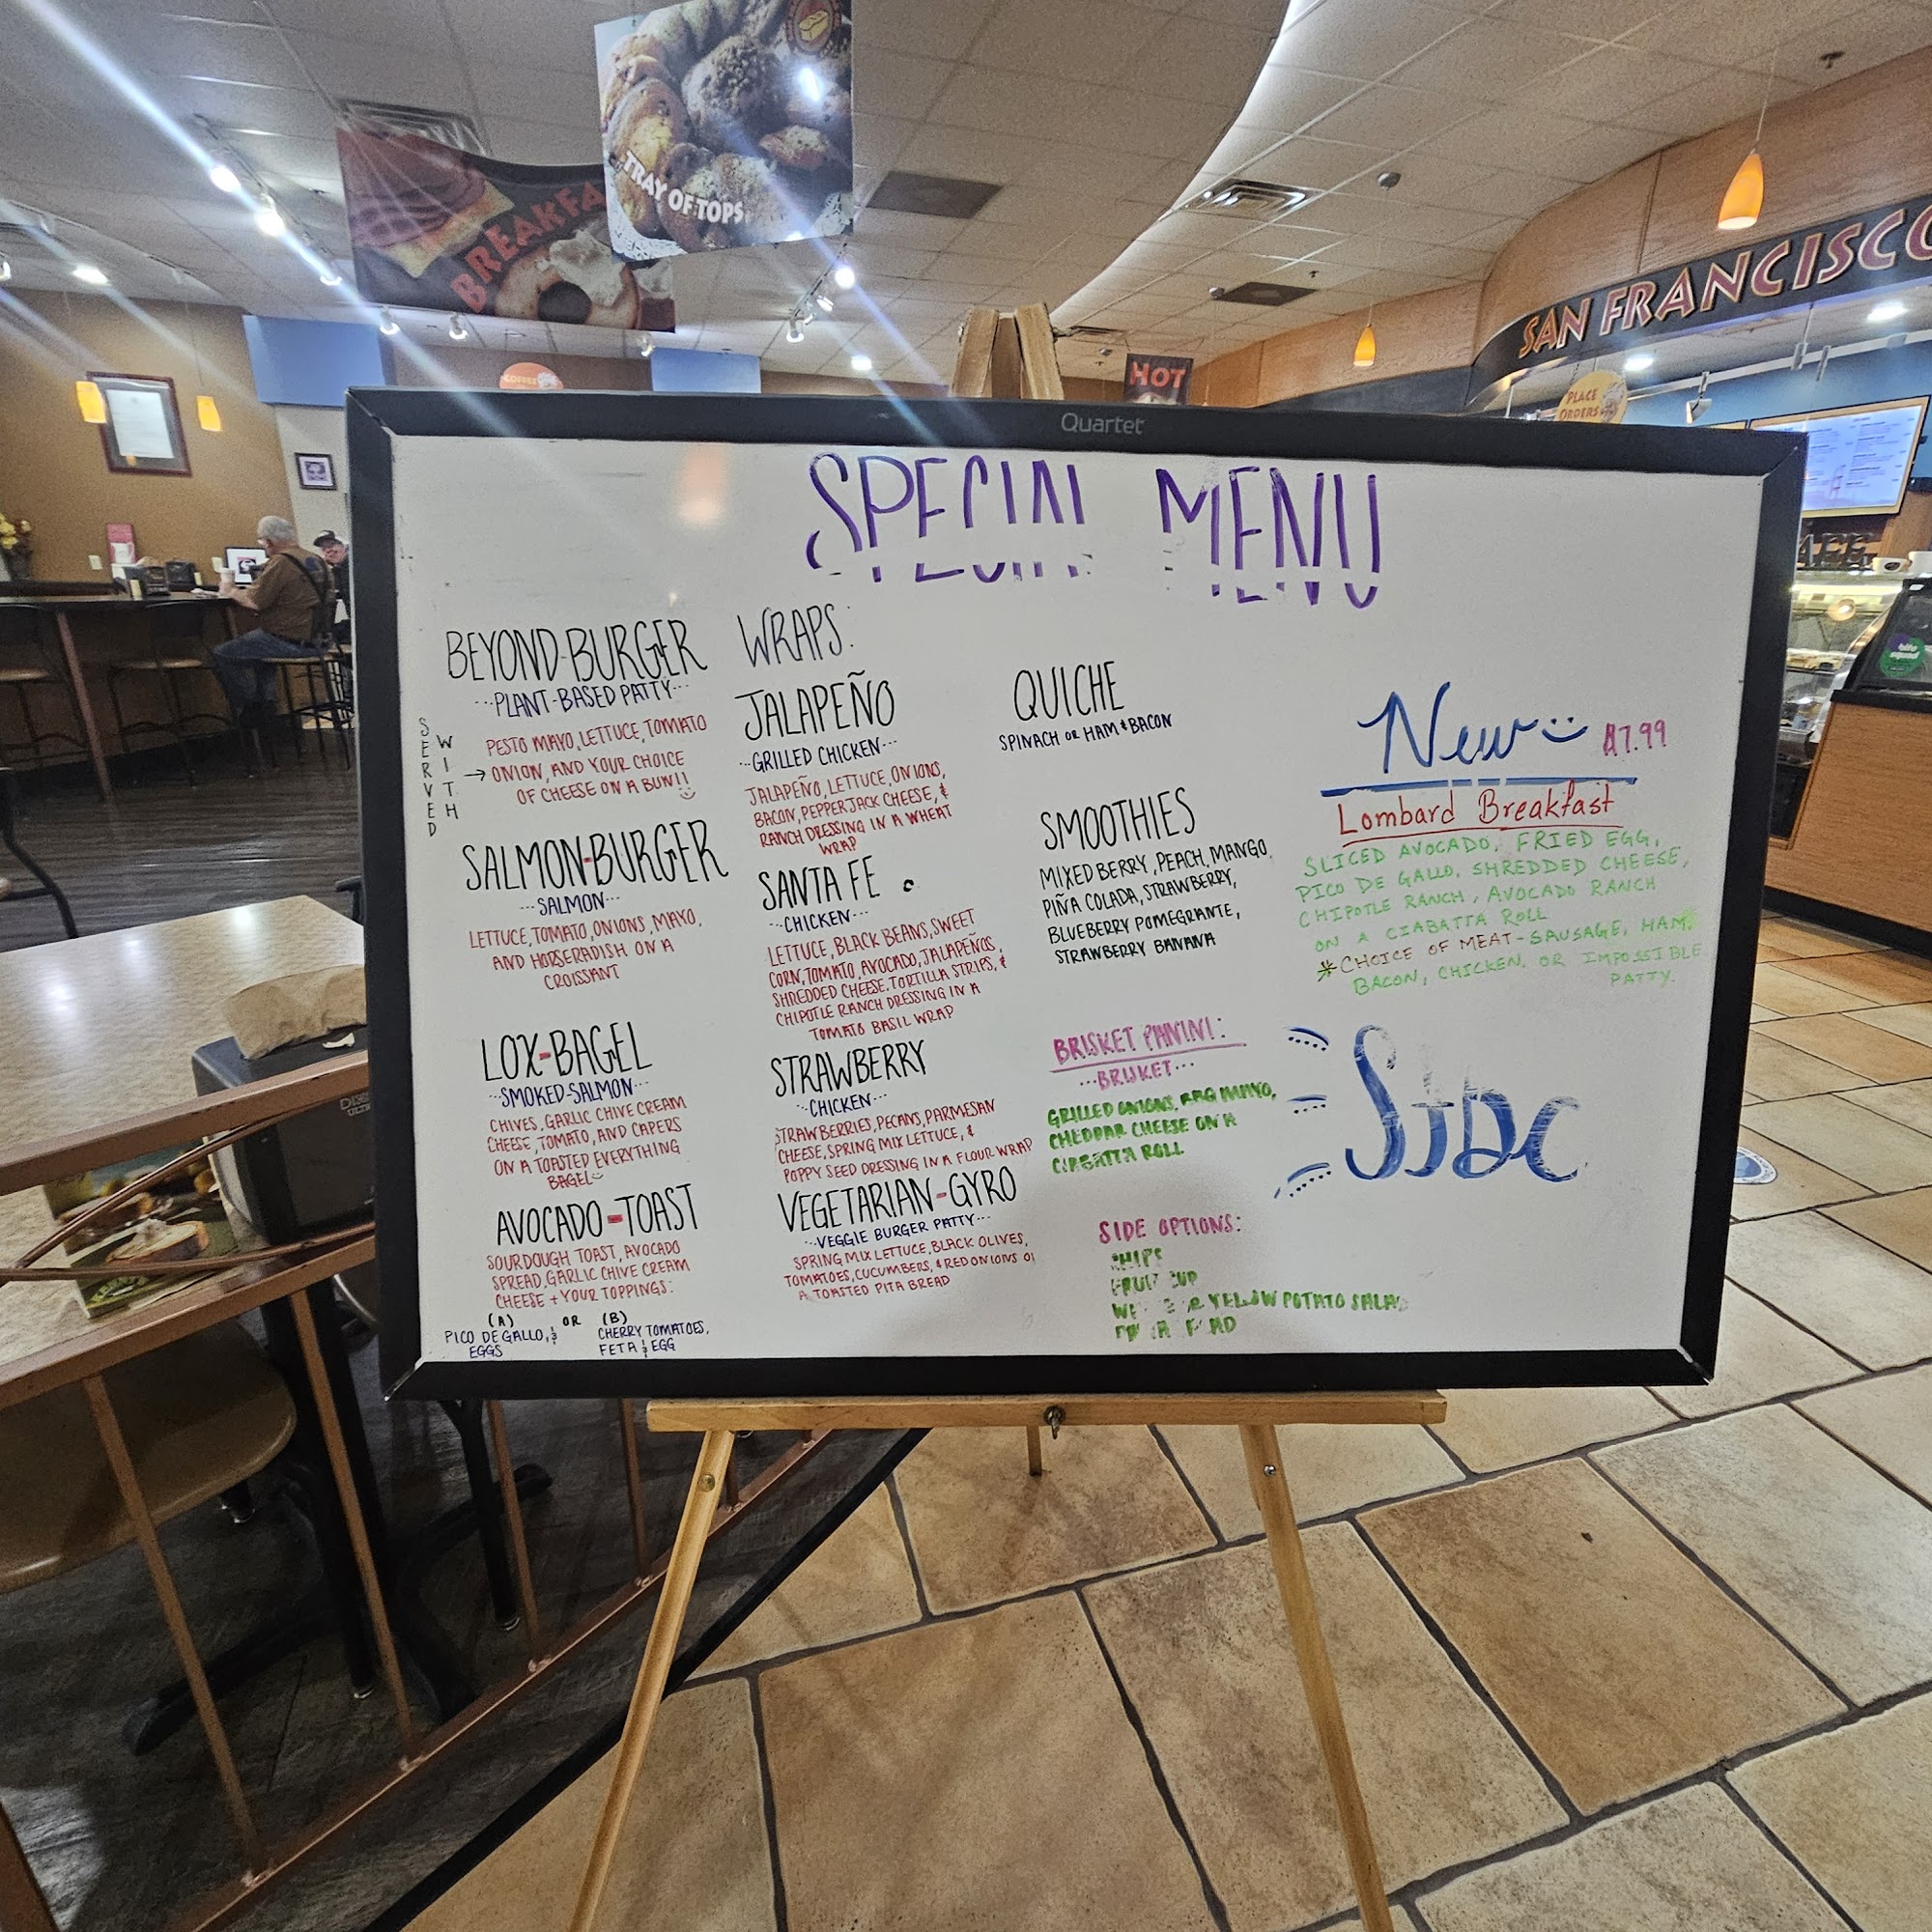 TRAY OF TOPS
BREAKFA
COFFEE
HOT
SAN FRANCISCO
PLACE
ORDERS
Quartet
SPECIAL MENU
BEYOND-BURGER
...PLANT-BASED PATTY...
SERVED
WITH
→
PESTO MAYO, LETTUCE, TOMATO
ONION, AND YOUR CHOICE
OF CHEESE ON A BUN!!
SALMON-BURGER
...SALMON...
LETTUCE, TOMATO, ONIONS, MAYO,
AND HORSERADISH ON A
CROISSANT
LOX-BAGEL
...SMOKED-SALMON...
CHIVES, GARLIC CHIVE CREAM
CHEESE, TOMATO, AND CAPERS
ON A TOASTED EVERYTHING
BAGEL
AVOCADO-TOAST
SOURDOUGH TOAST, AVOCADO
SPREAD, GARLIC CHIVE CREAM
CHEESE + YOUR TOPPINGS:
(A) OR (B)
PICO DE GALLO, &
EGGS
CHERRY TOMATOES,
FETA & EGG
WRAPS:
JALAPEÑO
...GRILLED CHICKEN...
JALAPEÑO, LETTUCE, ONIONS,
BACON, PEPPERJACK CHEESE, &
RANCH DRESSING IN A WHEAT
WRAP
SANTA FE
...CHICKEN...
LETTUCE, BLACK BEANS, SWEET
CORN, TOMATO, AVOCADO, JALAPEÑOS,
SHREDDED CHEESE, TORTILLA STRIPS, &
CHIPOTLE RANCH DRESSING IN A
TOMATO BASIL WRAP
STRAWBERRY
...CHICKEN...
STRAWBERRIES, PECANS, PARMESAN
CHEESE, SPRING MIX LETTUCE, &
POPPY SEED DRESSING IN A FLOUR WRAP
VEGETARIAN-GYRO
...VEGGIE BURGER PATTY...
SPRING MIX LETTUCE, BLACK OLIVES,
TOMATOES, CUCUMBERS, & RED ONIONS O
A TOASTED PITA BREAD
QUICHE
SPINACH OR HAM & BACON
SMOOTHIES
MIXED BERRY, PEACH, MANGO,
PIÑA COLADA, STRAWBERRY,
BLUEBERRY POMEGRANTE,
STRAWBERRY BANANA
BRISKET PANINI:
...BRISKET...
GRILLED ONIONS, BBQ MAYO,
CHEDDAR CHEESE ON A
CIABATTA ROLL
SIDE OPTIONS:
CHIPS
FRUIT CUP
YELLOW POTATO SALAD
New $7.99
Lombard Breakfast
SLICED AVOCADO, FRIED EGG,
PICO DE GALLO, SHREDDED CHEESE,
CHIPOTLE RANCH, AVOCADO RANCH
ON A CIABATTA ROLL
*CHOICE OF MEAT-SAUSAGE, HAM,
BACON, CHICKEN, OR IMPOSSIBLE
PATTY.
Sfbc